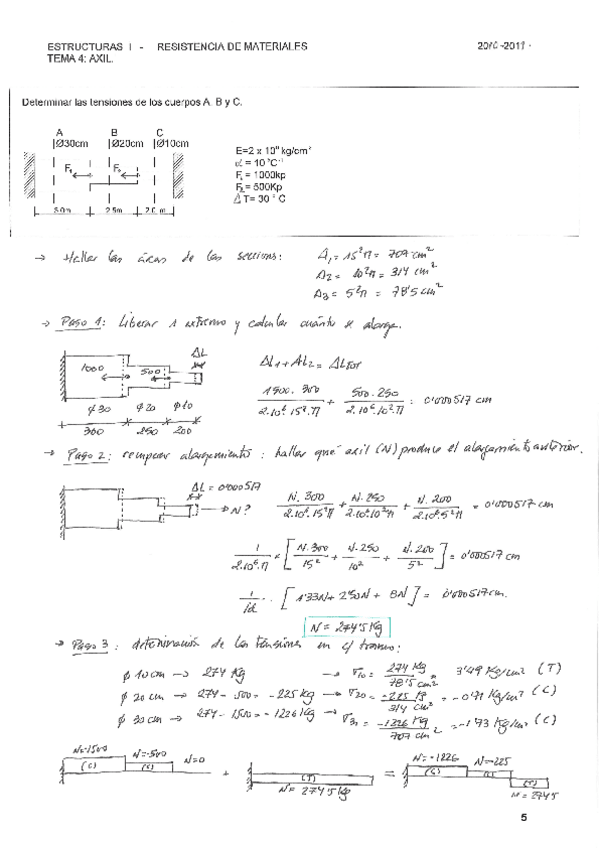 ESTRUCTURAS I - RESISTENCIA DE MATERIALES 2010-2011
TEMA 4: AXIL.
Determinar las tensiones de los cuerpos A, B y C.
A B C
Ø30cm Ø20cm Ø10cm
E=2 x 10⁶ kg/cm²
F₁ = 1000kp
F₂ = 500Kp
Δ T= 30 ° C
3.0m 2.5m 2.0 m
→ Hallar las áreas de las secciones: A₁ = 15²π = 707 cm²
A₂ = 10²π = 314 cm²
A₃ = 5²π = 78'5 cm²
→ Paso 1: Liberar 1 extremo y calcular cuánto se alarga.
ΔL
1000 500
ΔL₁ + ΔL₂ = ΔLTOT
1500 · 300 / 2·10⁶·15²·π + 500·250 / 2·10⁶·10²·π = 0'000517 cm
ϕ30 ϕ20 ϕ10
300 250 200
→ Paso 2: recuperar alargamiento: hallar qué axil (N) produce el alargamiento anterior.
ΔL = 0'000517
N?
N·300 / 2·10⁶·15²π + N·250 / 2·10⁶·10²π + N·200 / 2·10⁶·5²π = 0'000517 cm
1 / 2·10⁶·π · [ N·300 / 15² + N·250 / 10² + N·200 / 5² ] = 0'000517 cm
[ 1'33N + 2'50N + 8N ] = 0'000517 cm.
N = 274'5 Kg
→ Paso 3: determinación de las tensiones en c/ tramo:
ϕ 10 cm → 274 Kg → σ₁₀ = 274 Kg / 78'5 cm² = 3'49 Kg/cm² (T)
ϕ 20 cm → 274 - 500 = -225 Kg → σ₂₀ = -225 Kg / 314 cm² = -0'71 Kg/cm² (C)
ϕ 30 cm → 274 - 1500 = -1226 Kg → σ₃₀ = -1226 Kg / 707 cm² = -1'73 Kg/cm² (C)
N=-1500 N=-500 N=0 N=-1226 N=-225
(C) (C) + (T) = (C)
N = 274'5 Kg N = 274'5
5